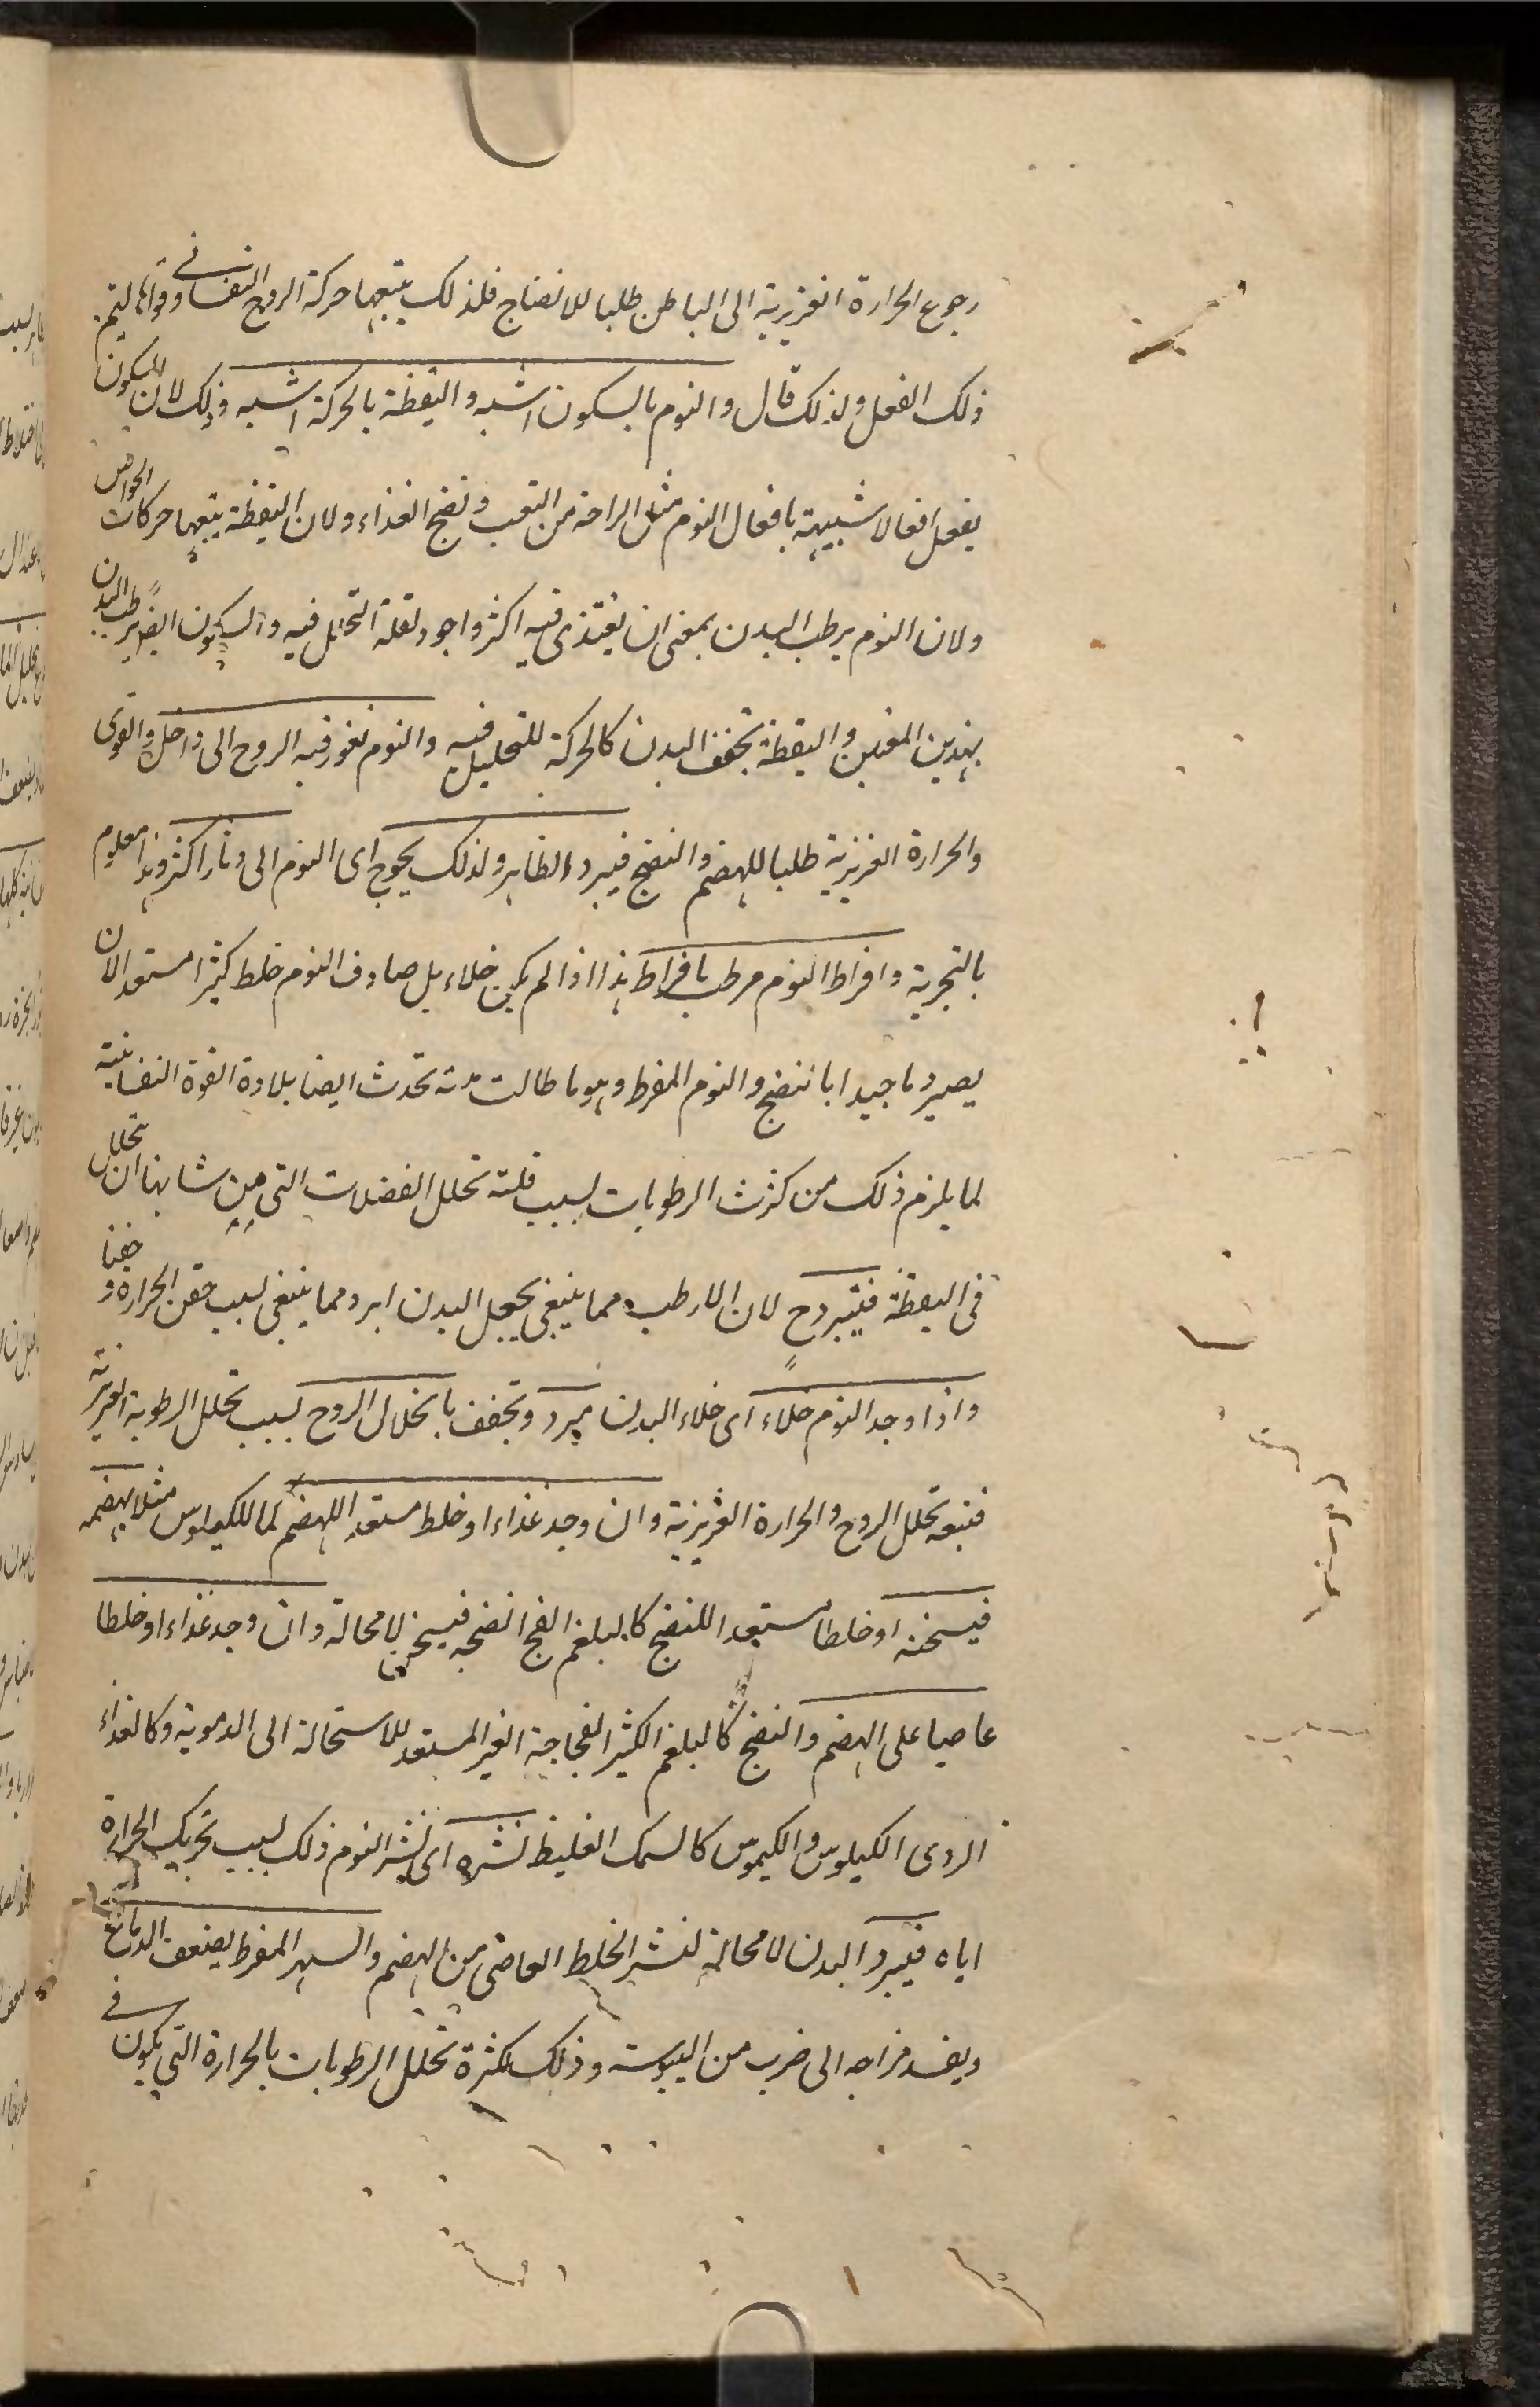 رجوع الحرارة الغريزية الى الباطن طلبا للانضاج فلذلك يتبعها حركة الروح النفسانى وقواها ليتم
ذلك الفعل ولذلك قال والنوم بالسكون اشبه واليقظة بالحركة اشبه وذلك لان السكون
يفعل افعالا شبيهة بافعال النوم مثل الراحة من التعب ونضج الغذاء ولان اليقظة يتبعها حركات الحواس
ولان النوم يرطب البدن بمعنى ان يغتذى فيه اكثر واجود لقلة التحلل فيه والسكون ايضا يرطب البدن
بهذين المعنيين واليقظة تجفف البدن كالحركة للتحليل فيه والنوم تغور فيه الروح الى داخل والقوى
والحرارة الغريزية طلبا للهضم والنضج فيبرد الظاهر ولذلك يحوج اى النوم الى دثار اكثر وهذا معلوم
بالتجربة وافراط النوم مرطب بافراط هذا اذا لم يكن خلاء بل صادف النوم خلط كثيرا مستعدا لان
يصير دما جيدا بالنضج والنوم المفرط وهو ما طالت مدته تحدث ايضا بلادة القوة النفسانية
لما يلزم ذلك من كثرت الرطوبات لسبب قلة تحلل الفضلات التى من شانها ان تحلل
فى اليقظة فيتبرد ح لان الارطب مما ينبغى يجعل البدن ابرد مما ينبغى لسبب حقن الحرارة و خفنا
واذا وجد النوم خلاء اى خلاء البدن يبرد وتجفف بانحلال الروح لسبب تحلل الرطوبة الغريزية
فتبعه تحلل الروح والحرارة الغريزية وان وجد غذاء او خلط مستعد اللهضم لما للكيلوس مثلا يهضمه
فيسخنه او خلطا مستعدا للنضج كالبلغم الفج انضجه فيسخن لا محالة وان وجد غذاء او خلطا
عاصيا على الهضم والنضج كالبلغم الكثير الفجاجة الغير المستعد للاستحالة الى الدموية وكالغذاء
الردى الكيلوس والكيموس كالسمك الغليظ نشره اى نشر النوم ذلك لسبب تحريك الحرارة
اياه فيبرد البدن لا محالة لنشر الخلط العاصى من الهضم والسهر المفرط يضعف الدماغ
ويفسد مزاجه الى ضرب من اليبوسة وذلك لكثرة تحلل الرطوبات بالحرارة التى يكون فى